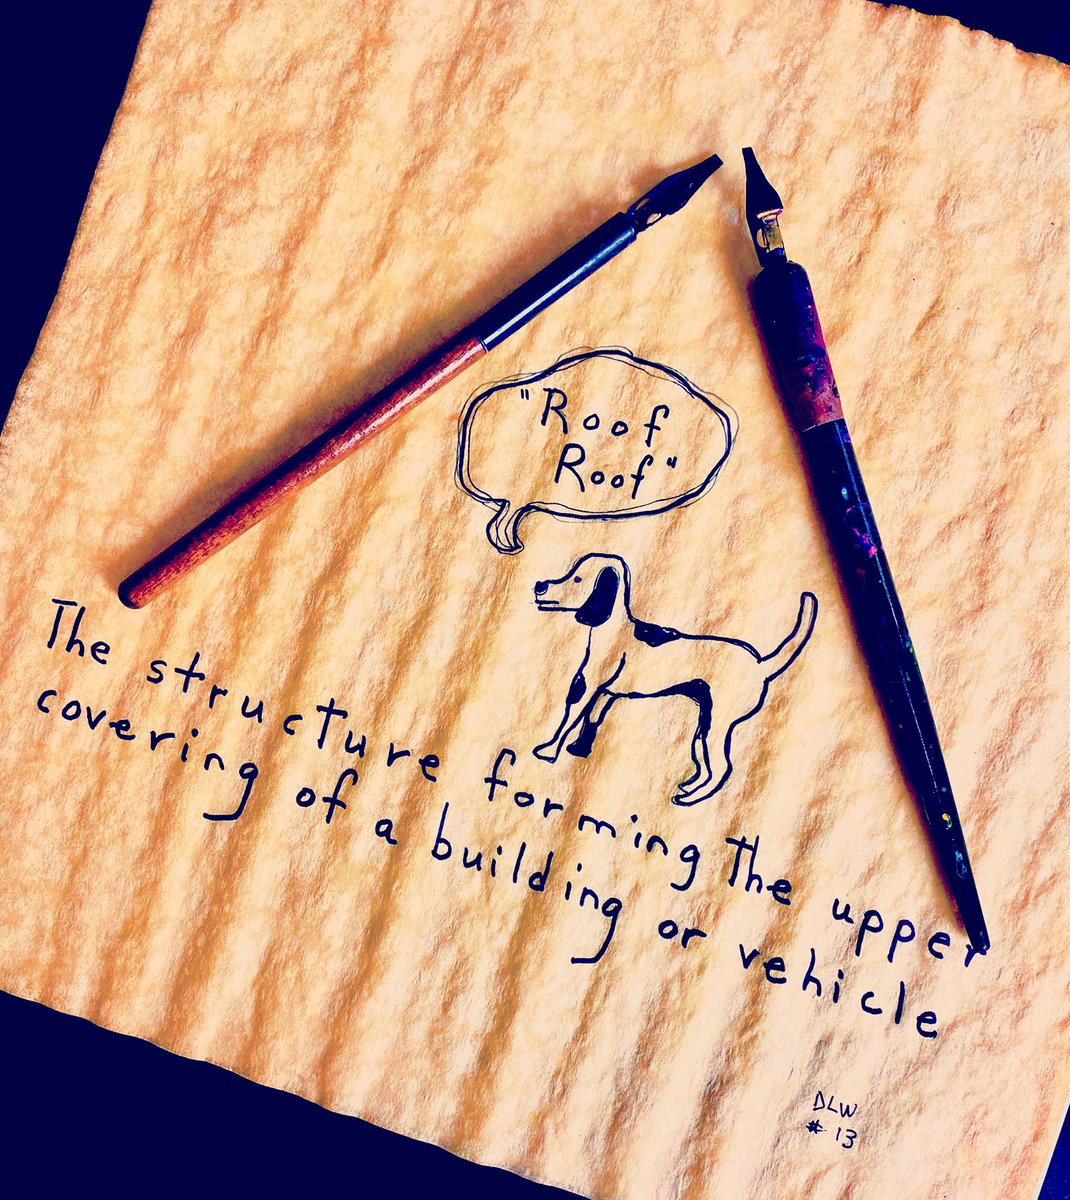 "Roof
Roof"
The structure forming The upper
covering of a building or vehicle
DLW
# 13